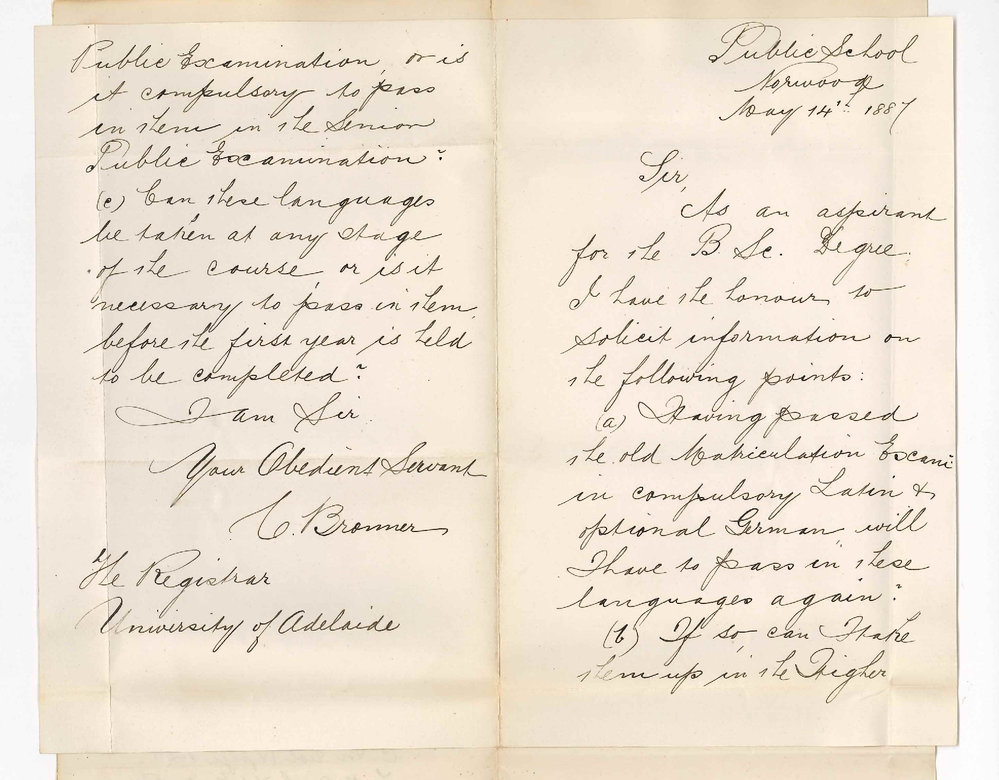 Public School
Norwood
May 14th 1887
Sir,
As an aspirant
for the B. Sc. Degree
I have the honour to
solicit information on
the following points:
(a) Having passed
the old Matriculation Exam:
in compulsory Latin &
optional German will
I have to pass in these
languages again?
(b) If so, can I take
them up in the Higher
Public Examination, or is
it compulsory to pass
in them in the Senior
Public Examination?
(c) Can these languages
be taken at any stage
of the course, or is it
necessary to pass in them
before the first year is held
to be completed?
I am Sir
Your Obedient Servant
C. Bronner
The Registrar
University of Adelaide